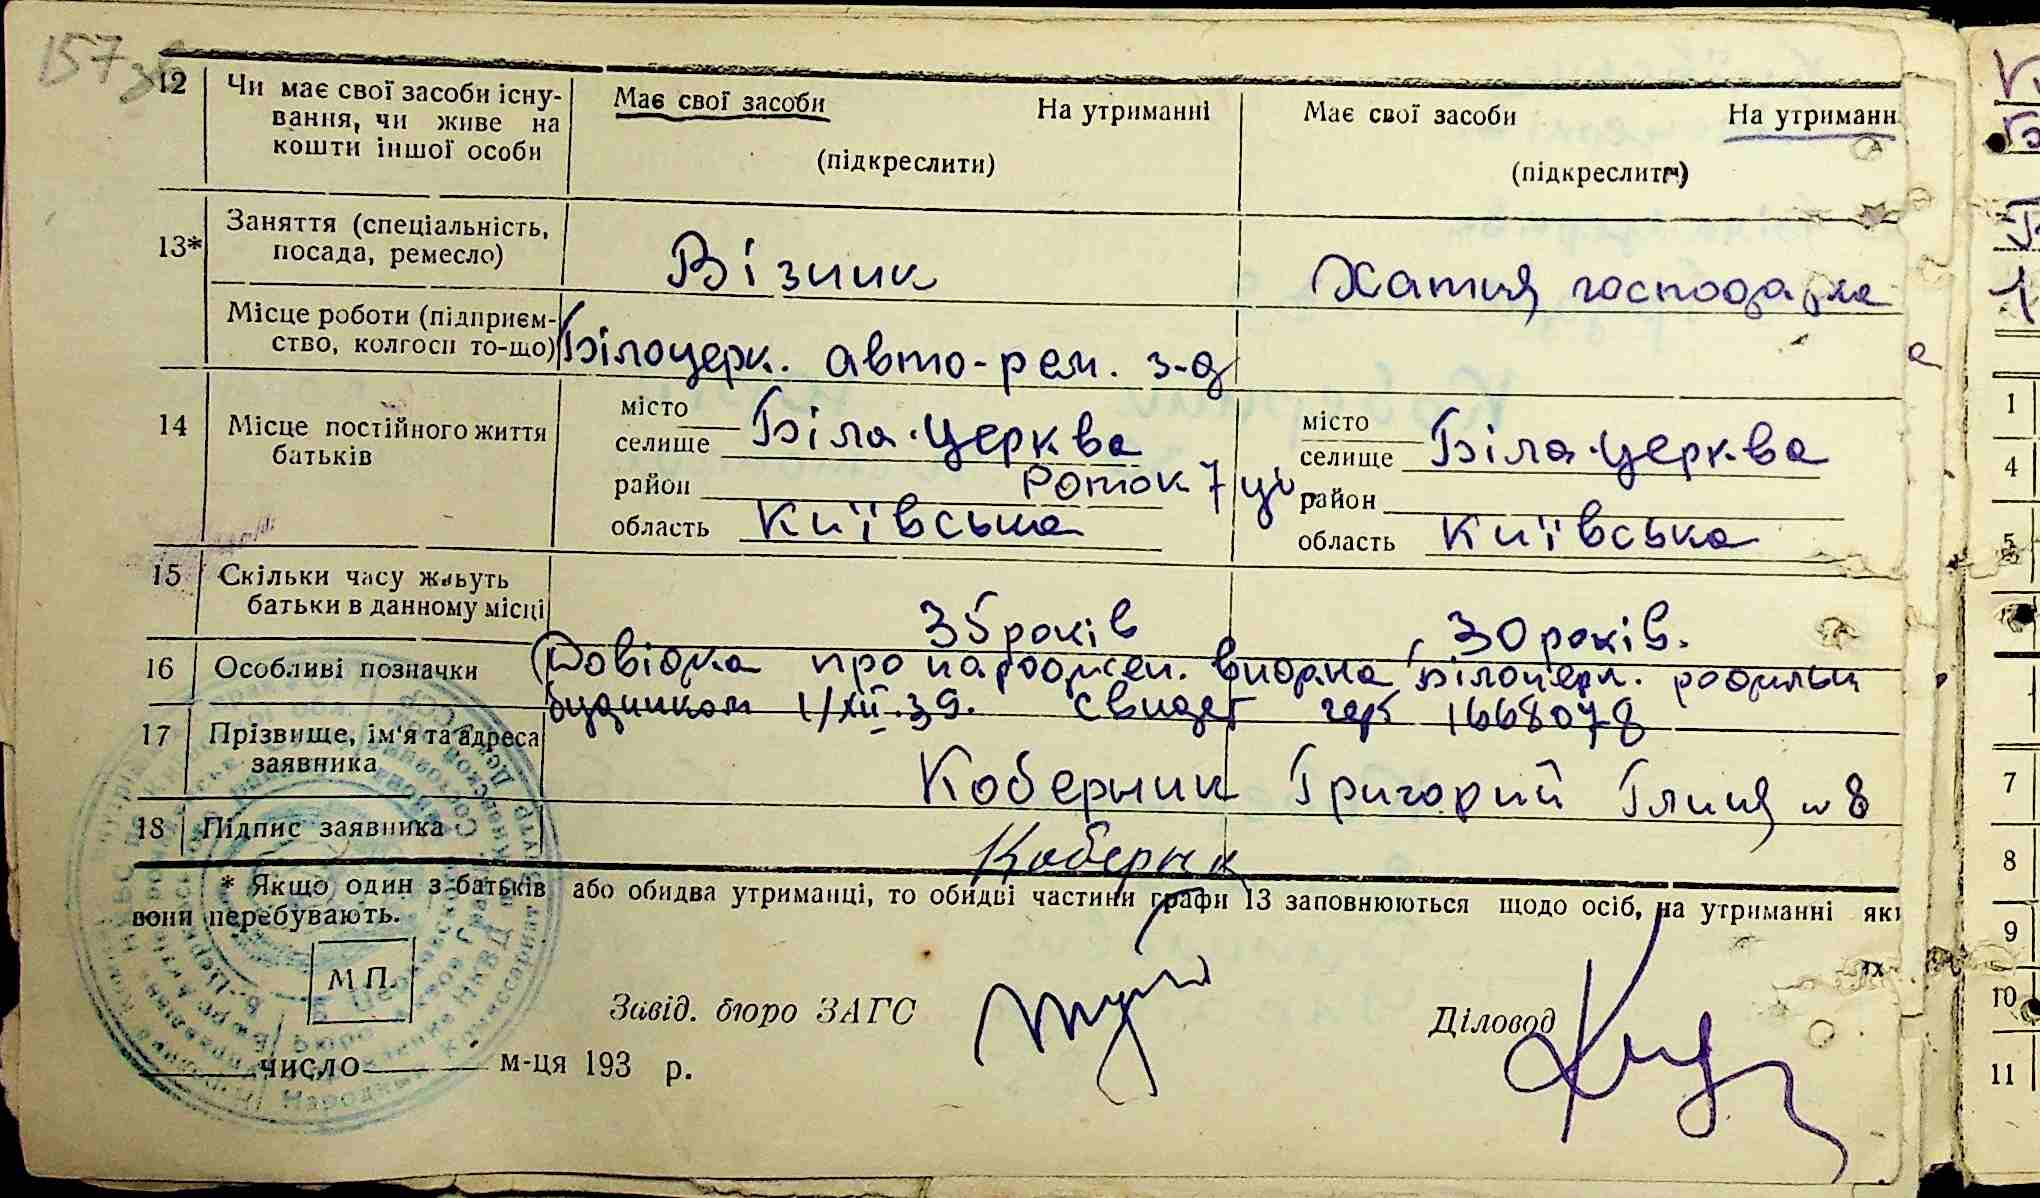 157 зв
12 Чи має свої засоби існу-
вання, чи живе на
кошти іншої особи
Має свої засоби На утриманні
(підкреслити)
Має свої засоби На утриманн
(підкреслити)
13* Заняття (спеціальність,
посада, ремесло)
Візник Хатня господарка
Місце роботи (підприєм-
ство, колгосп то-що)
Білоцерк. авто-рем. з-д
14 Місце постійного життя
батьків
місто
селище Біла-Церква
район Роток 7
область Київська
місто
селище Біла-Церква
район
область Київська
15 Скільки часу живуть
батьки в данному місці
35 років 30 років.
16 Особливі позначки
Довідка про народжен. видана Білоцерк. родильн
будинком 1/XII.39. свидет 1668078
17 Прізвище, ім'я та адреса
заявника
Коберник Григорий Глиня н 8
18 Підпис заявника
Коберник
* Якщо один з батьків або обидва утриманці, то обидві частини графи 13 заповнюються щодо осіб, на утриманні які
вони перебувають.
М П.
Завід. бюро ЗАГС
Діловод
число м-ця 193 р.
1
4
5
7
8
9
10
11